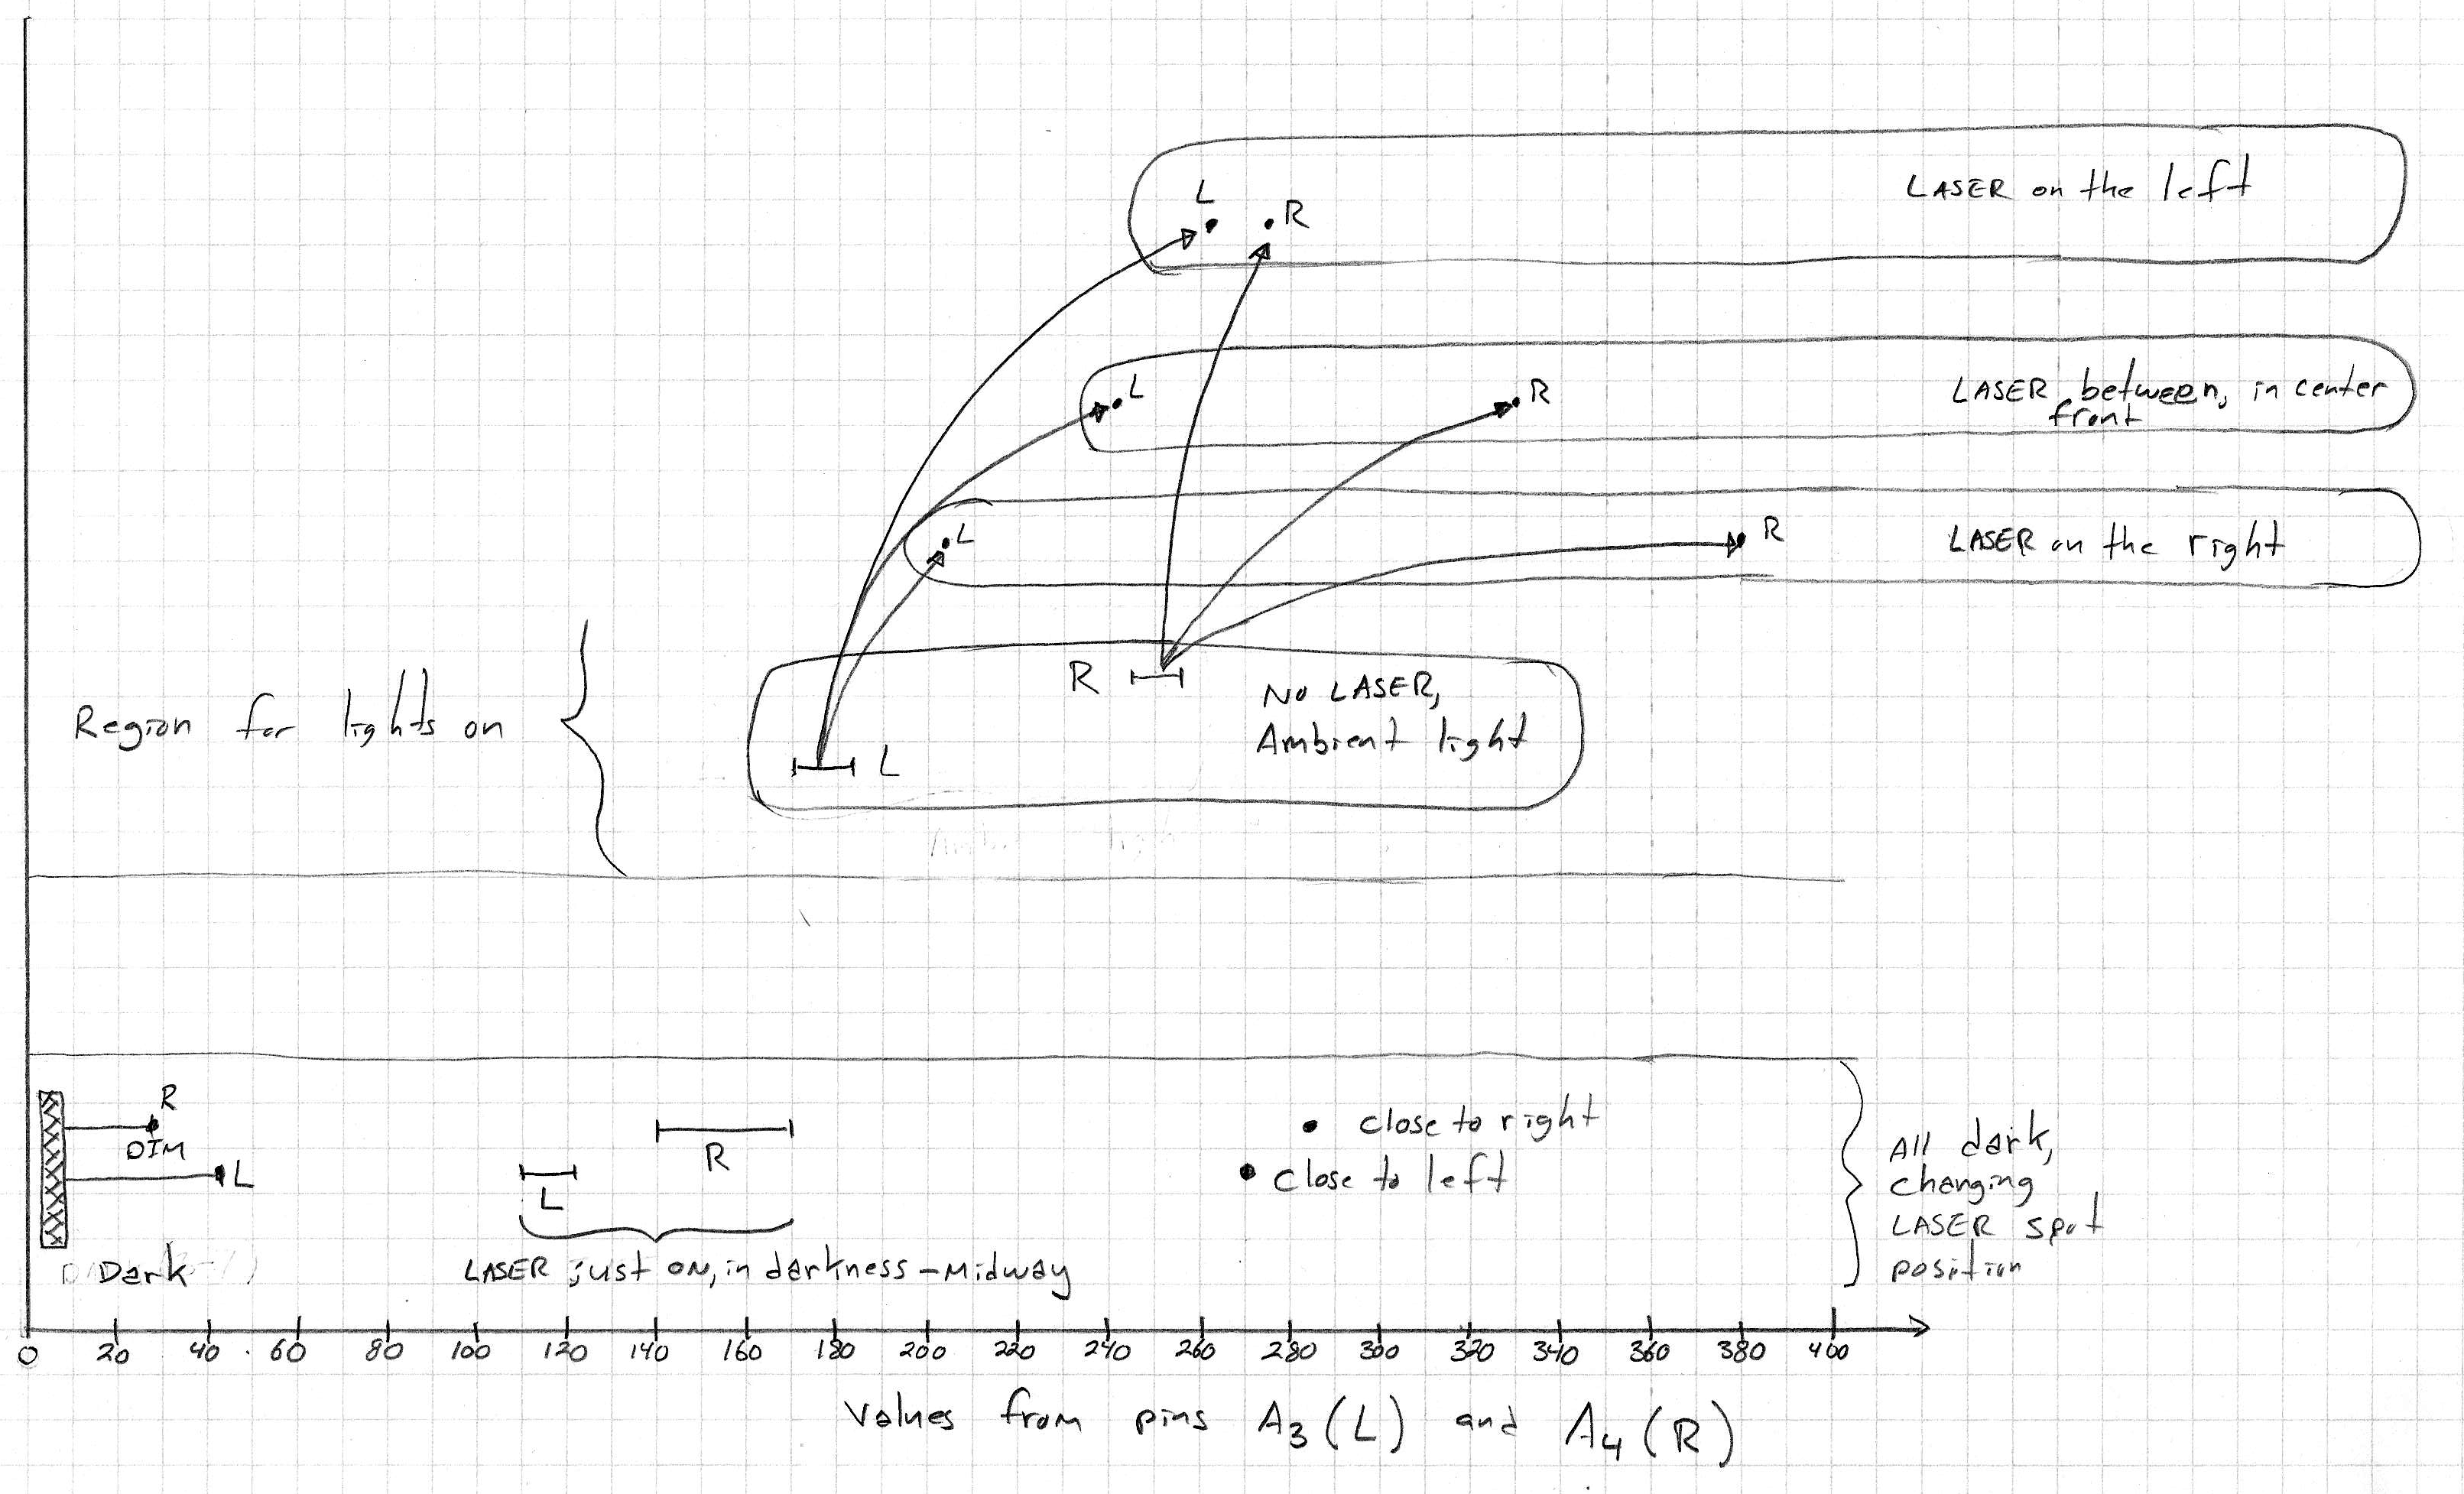 L
R
LASER on the left
L
R
LASER between, in center
front
L
R
LASER on the right
R
NO LASER,
Ambient light
Region for lights on
L
R
DIM
L
R
L
close to right
close to left
All dark,
changing
LASER spot
position
Dark
LASER just ON, in darkness - Midway
0 20 40 60 80 100 120 140 160 180 200 220 240 260 280 300 320 340 360 380 400
Values from pins A3 (L) and A4 (R)